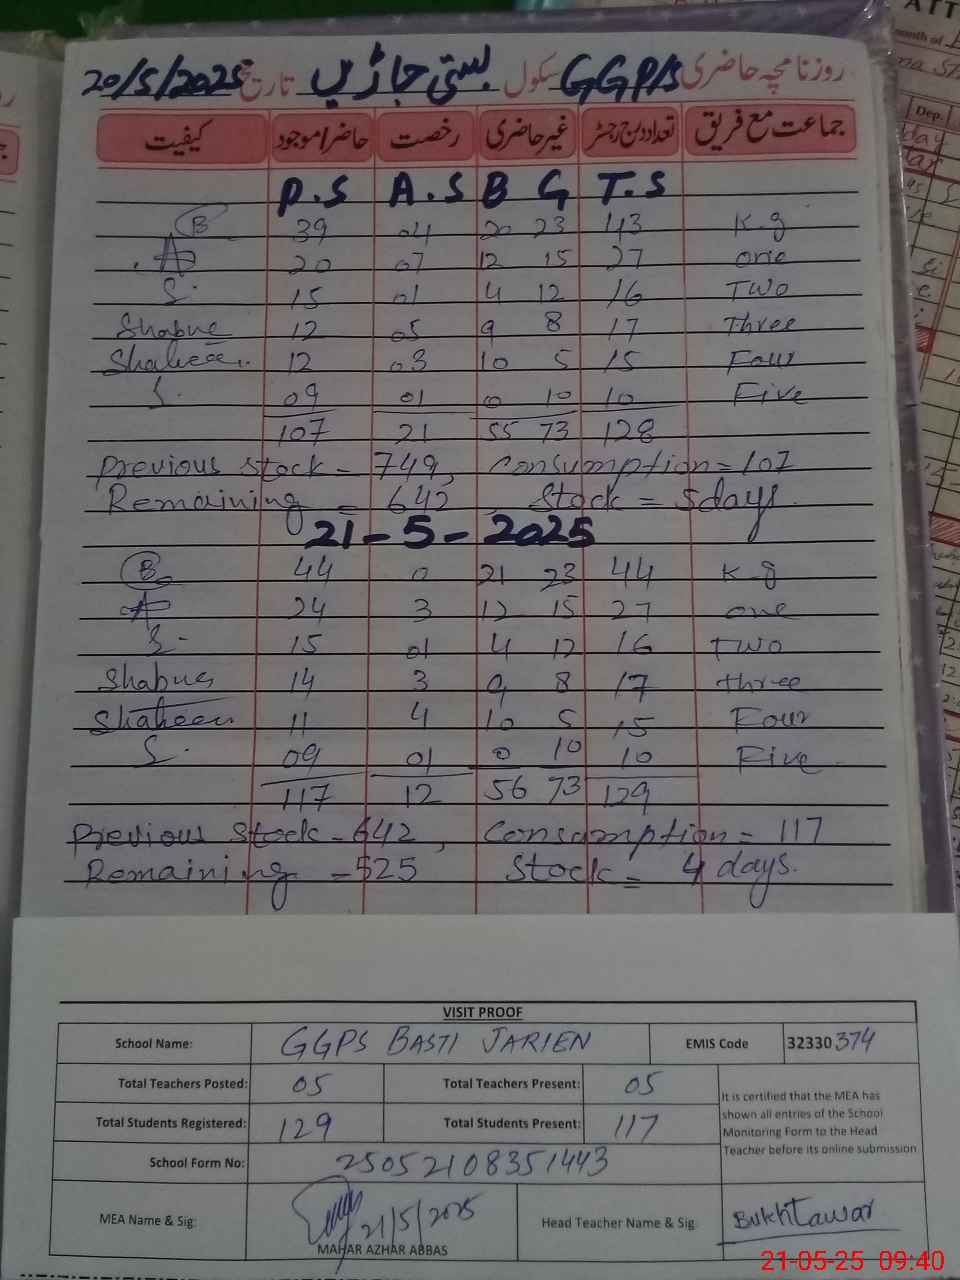 روزنامچہ حاضری GGP/S سکول بستی جاڑیں تاریخ 20/5/2025
جماعت مع فریق تعداد درج رجسٹر غیر حاضری رخصت حاضر/موجود کیفیت
P.S A.S B G T.S
B 39 04 20 23 43 K.g
A 20 07 12 15 27 one
S. 15 01 4 12 16 Two
12 05 9 8 17 Three
Shaheen. 12 03 10 5 15 Four
S. 09 01 0 10 10 Five
107 21 55 73 128
Previous stock - 749, Consumption = 107
Remaining = 642 Stock = 5 days.
21-5-2025
B 44 0 21 23 44 K.g
A 24 3 12 15 27 one
S- 15 01 4 12 16 Two
14 3 9 8 17 three
Shaheen 11 4 10 5 15 Four
S. 09 01 0 10 10 Five.
117 12 56 73 129
Previous stock - 642, Consumption = 117
Remaining - 525 Stock = 4 days.
VISIT PROOF
School Name: GGPS BASTI JARIEN EMIS Code 32330374
Total Teachers Posted: 05 Total Teachers Present: 05
It is certified that the MEA has
shown all entries of the School
Monitoring Form to the Head
Teacher before its online submission
Total Students Registered: 129 Total Students Present: 117
School Form No: 25052108351443
MEA Name & Sig: 21/5/2025
MAHAR AZHAR ABBAS
Head Teacher Name & Sig Bukhtawar
21-05-25 09:40
ATT
month of
Dep.